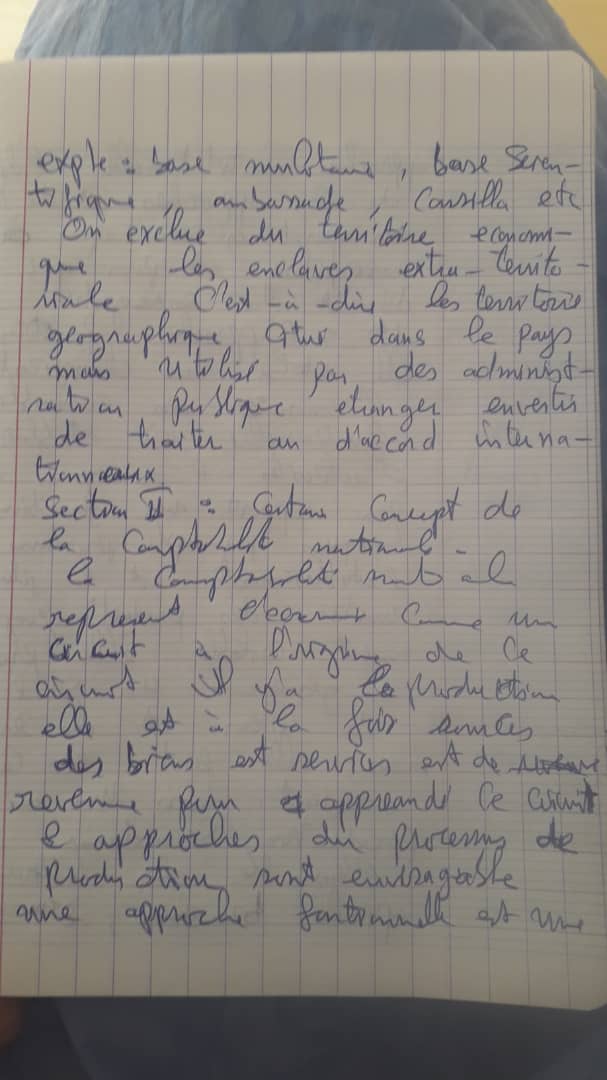 exple : base militaire, base Scien-
tifique, ambassade, Consilla etc
On exclue du territoire econom-
que les enclaves extra-territo-
riale C'est-à-dire les territoire
geographique Situr dans le pays
mais utilise par des administ-
ration publique etranger envertis
de traiter au d'accord interna-
tionneaux
Section II : Certains Concept de
la Comptabilit national
la Comptabilit national
represent Comme un
circuit à l'origine de Ce
circuit Il y'a la production
elle est à la fois sources
des biens est services est de
revenue pour apprendre Ce circuit
2 approches du processus de
production sont envisageable
une approche fontionnelle est une